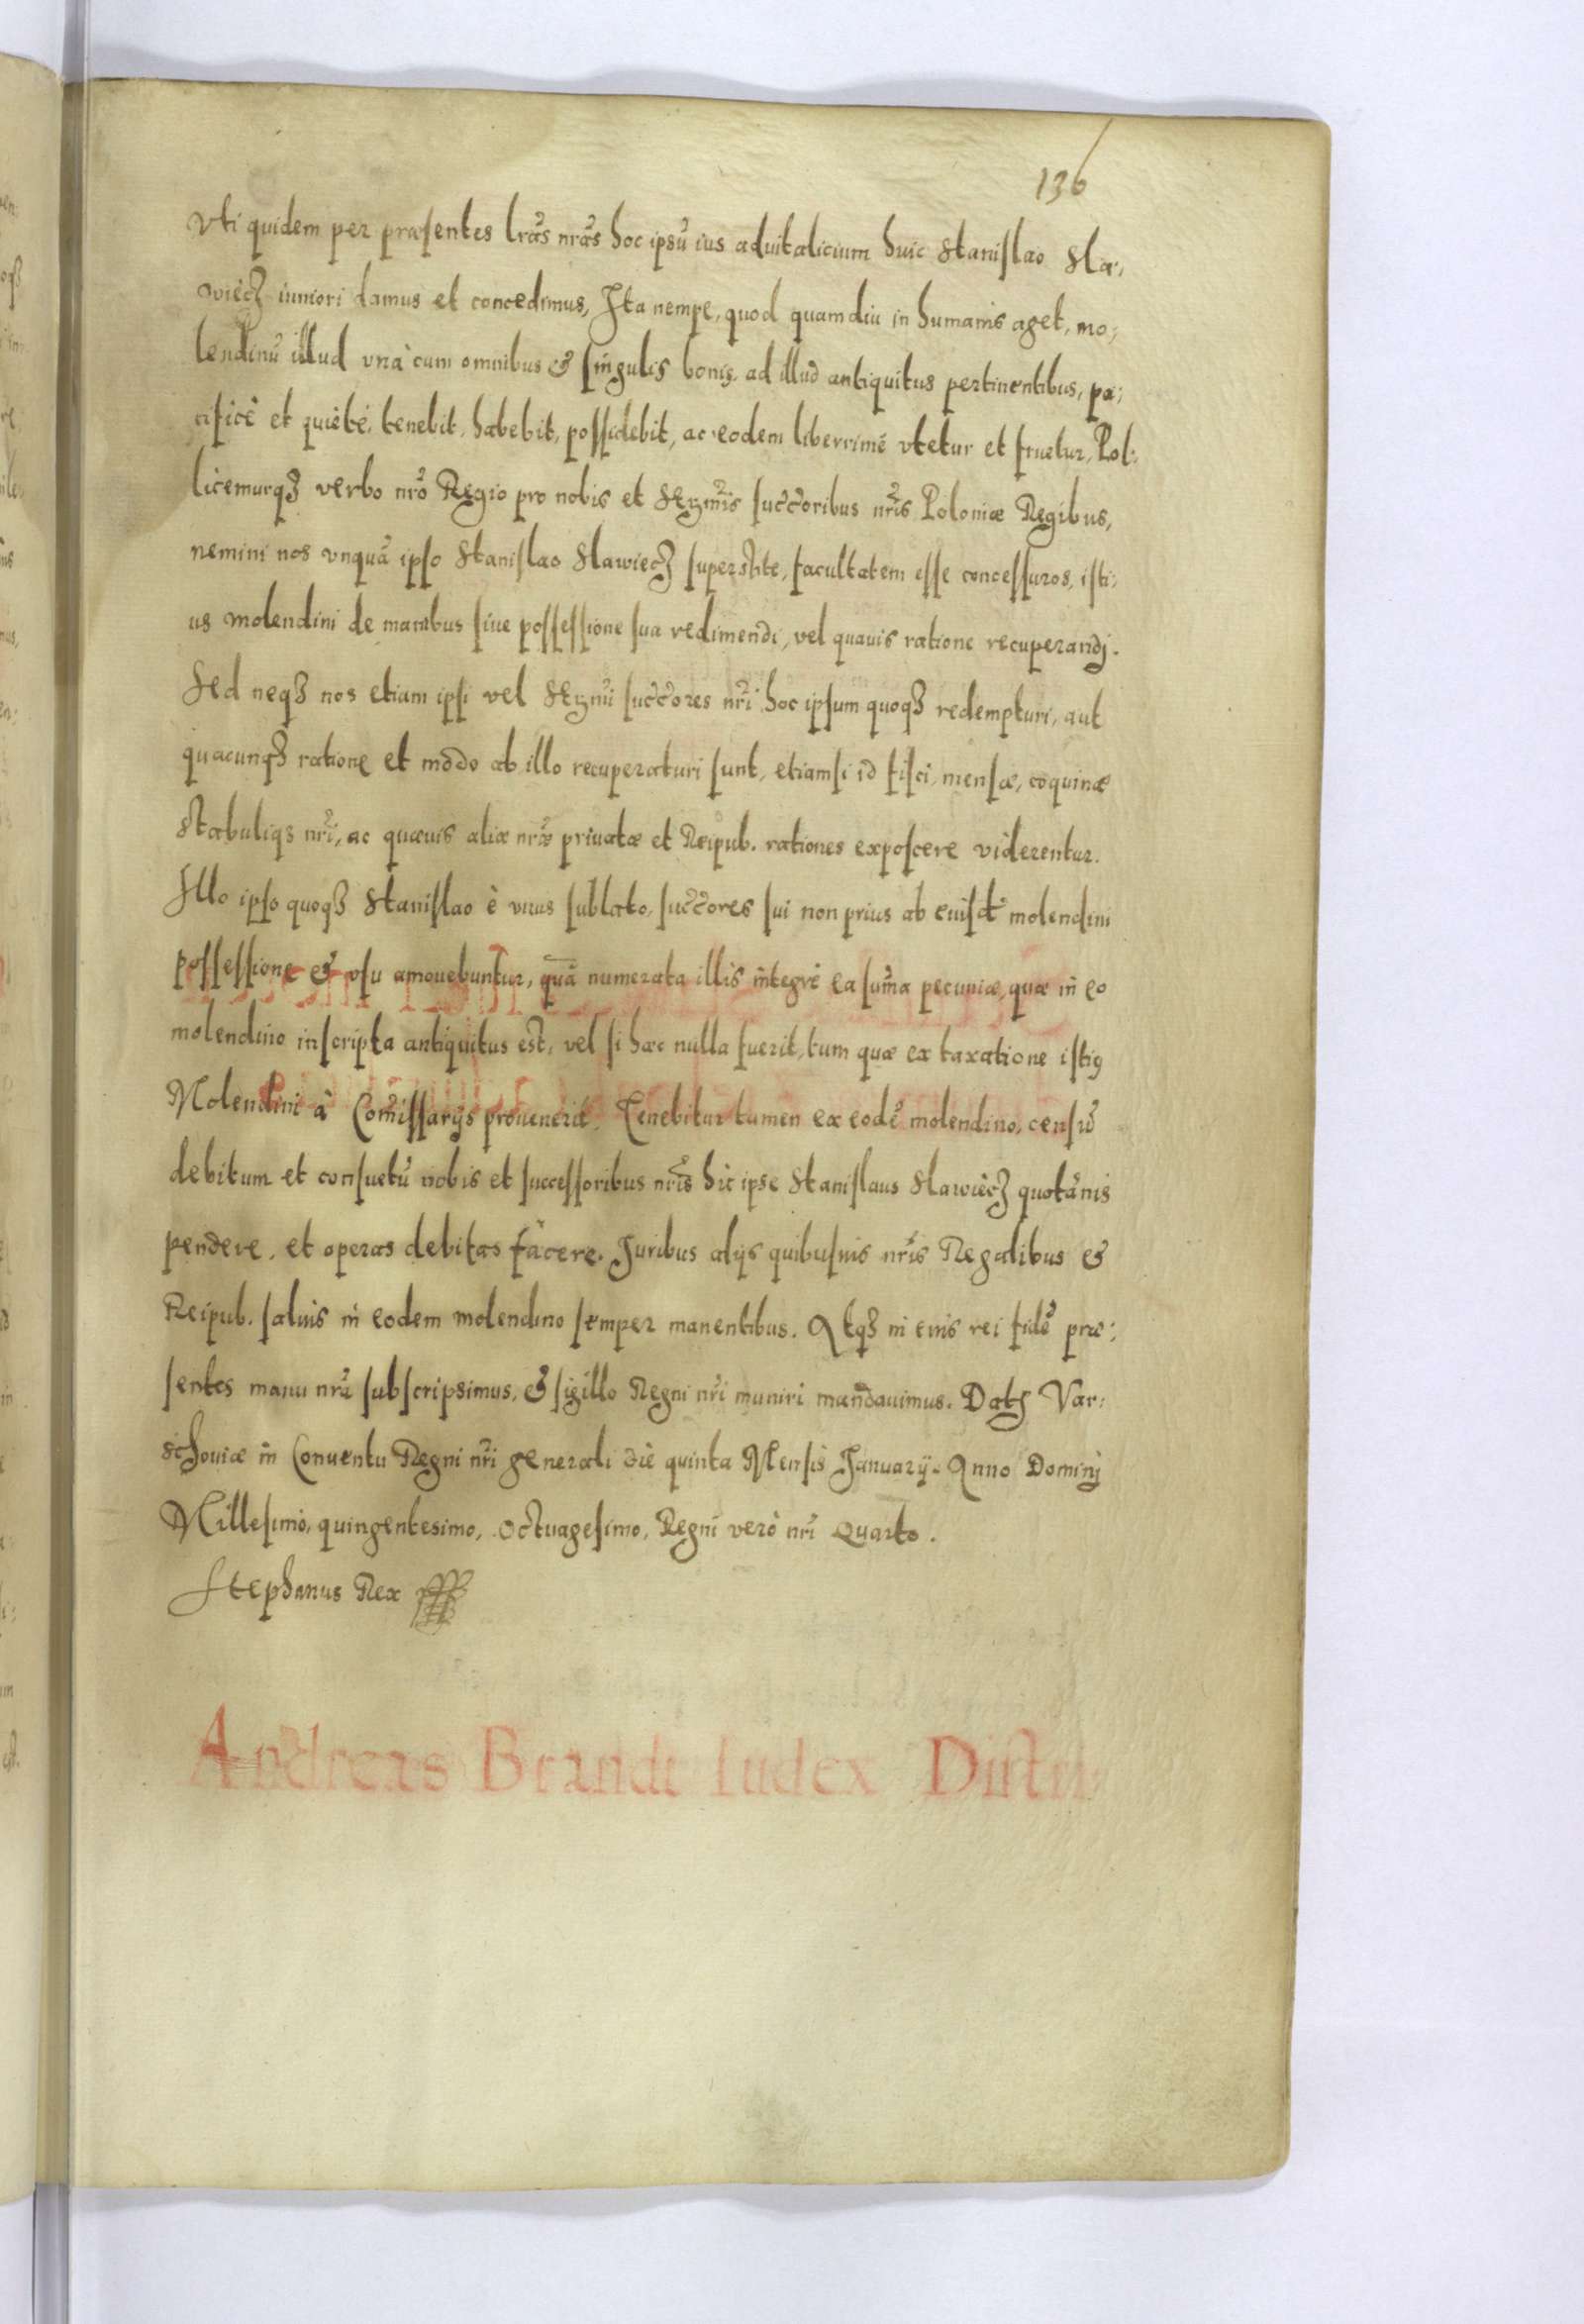 136
Vti quidem per præsentes lr̃as nr̃as hoc ipsũ ius aduitalicium huic Stanislao Sla:
wiecz iuniori damus et concedimus, Ita nempe, quod quamdiu in humanis aget, mo:
lendinũ illud vnà cum omnibus & singulis bonis, ad illud antiquitus pertinentibus, pa:
cificè et quiètè, tenebit, habebit, possidebit, ac eodem liberrimè vtetur et fruetur, Pol:
licemurq3 verbo nr̃o Regio pro nobis et Sẽrmis succ̃oribus nr̃is Poloniæ Regibus,
nemini nos vnquã ipso Stanislao Slawiecz superstite, facultatem esse concessuros, isti:
us molendini de manibus siue possessione sua redimendi, vel quauis ratione recuperandj.
Sed neq3 nos etiam ipsi vel Sẽrmi succ̃ores nr̃i hoc ipsum quoq3 redempturi, aut
quacunq3 ratione et modo ab illo recuperaturi sunt, etiamsi id fisci, mensæ, coquinæ
Stabuliq3 nr̃i, ac quæuis aliæ nr̃æ priuatæ et Reipub. rationes exposcere viderentur.
Illo ipso quoq3 Stanislao è viuis sublato, succ̃ores sui non prius ab euisd̃ molendini
possessione & vsu amouebuntur, quã numerata illis integrè ea sum̃a pecuniæ, quæ in eo
molendino inscripta antiquitus est, vel si hæc nulla fuerit, tum quæ ex taxatione istiꝰ
Molendini à Com̃issarijs prouenerit. Tenebitur tamen ex eodẽ molendino, censũ
debitum et consuetũ nobis et successoribus nr̃is hic ipse Stanislaus Slawiecz quotãnis
pendere, et operas debitas facere. Juribus alijs quibusuis nr̃is Regalibus &
Reipub. saluis in eodem molendino semper manentibus. Atq3 in euis rei fidẽ præ:
sentes manu nr̃a subscripsimus, & sigillo Regni nr̃i muniri mandauimus. Datꝭ Var:
schouiæ in Conuentu Regni nr̃i generali die quinta Mensis Januarij. Anno Dominj
Millesimo, quingentesimo, Octuagesimo, Regni verò nr̃i Quarto.
Stephanus Rex
Andreas Brandt Iudex Distri: